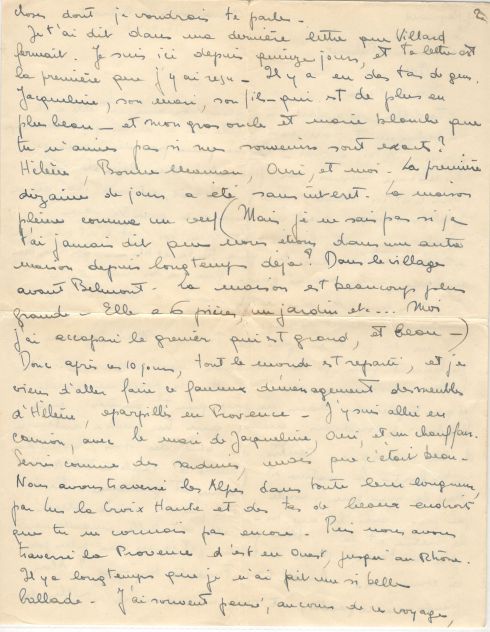 2
choses dont je voudrais te parler.
Je t'ai dit dans ma dernière lettre que Villard
fermait. Je suis ici depuis quinze jours, et ta lettre est
la première que j'y ai reçu - Il y a eu des tas de gens.
Jacqueline, son mari, son fils - qui est de plus en
plus beau - et mon gros oncle et marie blanche que
tu n'aimes pas si mes souvenirs sont exacts?
Hélène, Bonne Maman, Ouri, et moi. La première
dizaine de jours a été sans intérêt. La maison
pleine comme un oeuf (Mais je ne sais pas si je
t'ai jamais dit que nous étions dans une autre
maison depuis longtemps déjà? Dans le village
avant Belmont. La maison est beaucoup plus
grande - Elle a 6 pièces, un jardin etc... Moi
j'ai accaparé le grenier qui est grand, et beau -)
Donc après ces 10 jours, tout le monde est reparti, et je
viens d'aller faire ce fameux déménagement des meubles
d'Hélène, éparpillés en Provence - J'y suis allée en
camion, avec le mari de Jacqueline, Ouri, et un chauffeur.
Serrés comme des sardines, mais que c'était beau -
Nous avons traversé les Alpes dans toute leur longueur,
par Lus la Croix Haute et des tas de beaux endroits
que tu ne connais pas encore. Puis nous avons
traversé la Provence d'est en Ouest, jusqu'au Rhône.
Il y a longtemps que je n'ai fait une si belle
ballade - J'ai souvent pensé, au cours de ce voyage,